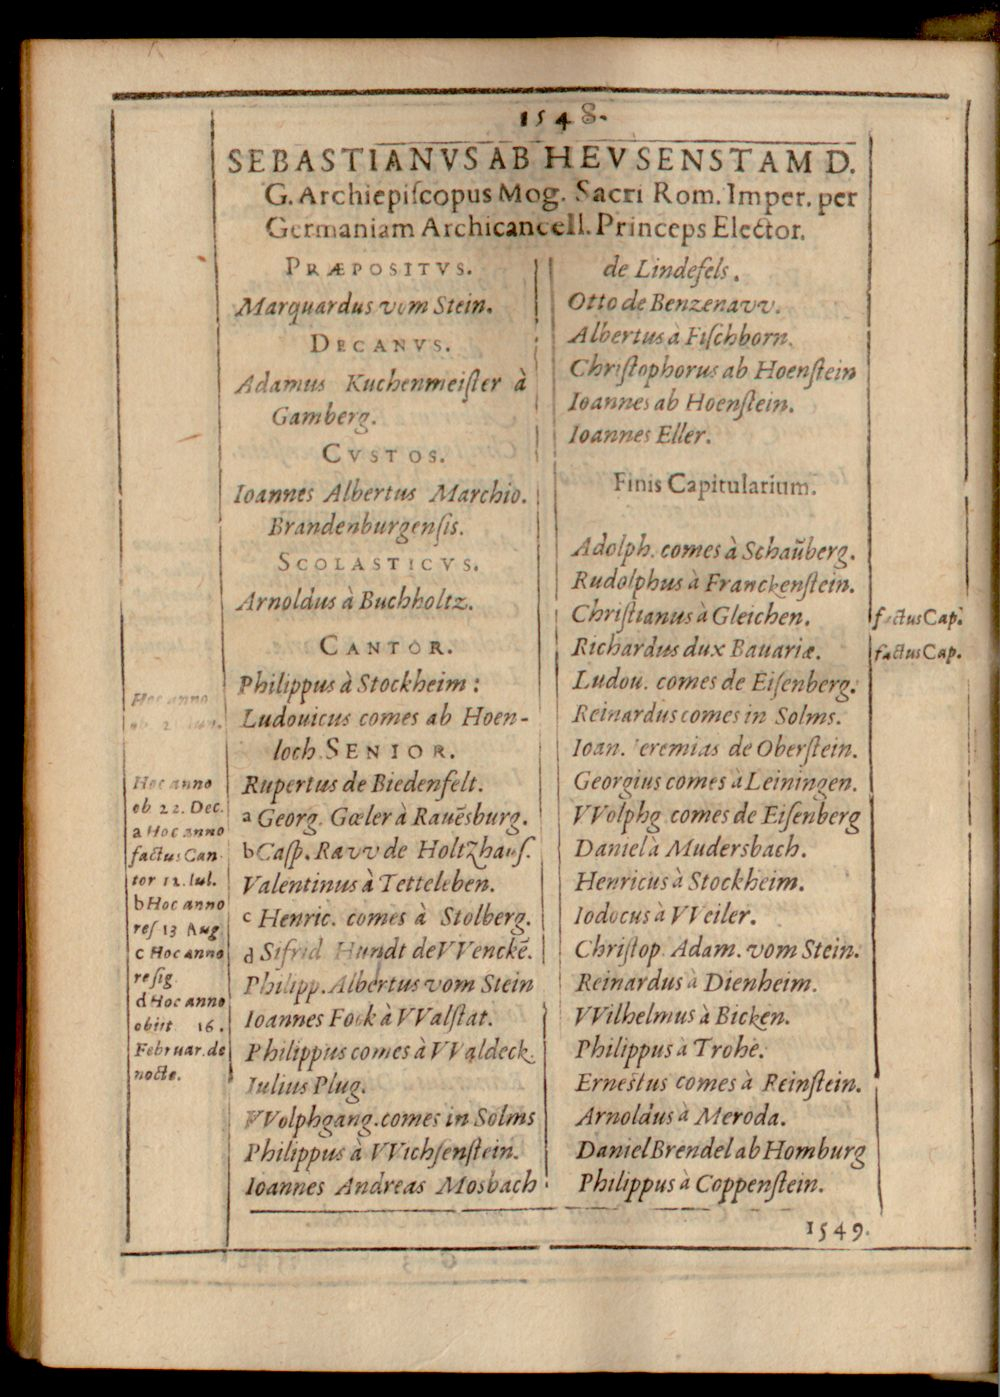 1548.
SEBASTIANVS AB HEVSENSTAM D.
G. Archiepiſcopus Mog. Sacri Rom. Imper. per
Germaniam Archicancell. Princeps Elector.
PRÆPOSITVS.
Marquardus vom Stein.
DECANVS.
Adamus Kuchenmeiſter à
Gamberg.
CVSTOS.
Ioannes Albertus Marchio.
Brandenburgenſis.
SCOLASTICVS.
Arnoldus à Buchholtz.
CANTOR.
Philippus à Stockheim:
Ludouicus comes ab Hoen-
loch SENIOR.
Rupertus de Biedenfelt.
a Georg. Gœler à Rauēsburg.
b Caſp. Ravv de Holtzhauſ.
Valentinus à Tetteleben.
c Henric. comes à Stolberg.
d Sifrid Hundt de VVenckē.
Philipp. Albertus vom Stein
Ioannes Fock à VValſtat.
Philippus comes à VValdeck.
Iulius Plug.
VVolphgang. comes in Solms
Philippus à VVichſenſtein.
Ioannes Andreas Mosbach
de Lindefels.
Otto de Benzenavv.
Albertus à Fiſchborn.
Chriſtophorus ab Hoenſtein
Ioannes ab Hoenſtein.
Ioannes Eller.
Finis Capitularium.
Adolph. comes à Schaūberg.
Rudolphus à Franckenſtein.
Chriſtianus à Gleichen.
Richardus dux Bauariæ.
Ludou. comes de Eiſenberg.
Reinardus comes in Solms.
Ioan. Ieremias de Oberſtein.
Georgius comes à Leiningen.
VVolphg. comes de Eiſenberg
Daniel à Mudersbach.
Henricus à Stockheim.
Iodocus à VVeiler.
Chriſtop. Adam. vom Stein.
Reinardus à Dienheim.
VVilhelmus à Bicken.
Philippus à Trohe.
Erneſtus comes à Reinſtein.
Arnoldus à Meroda.
Daniel Brendel ab Homburg
Philippus à Coppenſtein.
1549.
Hoc anno
ob 2
Hoc anno
ob 22. Dec.
a Hoc anno
factus Can
tor 12. Iul.
b Hoc anno
reſ 13 Aug
c Hoc anno
reſig
d Hoc anno
obiit 16.
Februar. de
nocte.
factus Cap.
factus Cap.